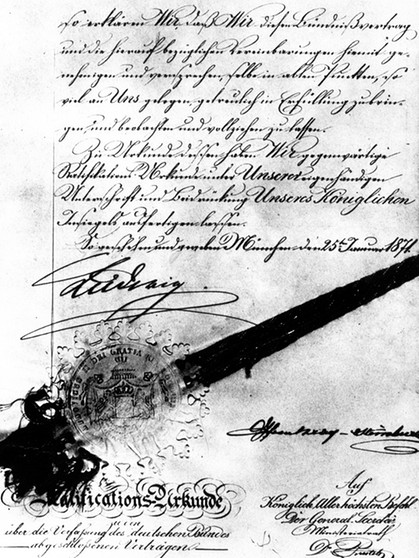 so erklären Wir, daß Wir diesen Bündnißvertrag
und die hierauf bezüglichen Vereinbarungen hiemit ge-
nehmigen und versprechen, selbe in allen Punkten, so
viel an Uns gelegen, getreulich in Erfüllung zu brin-
gen, und beobachten und vollziehen zu lassen.
Zu Urkunde dessen haben Wir gegenwärtige
Ratifikations-Urkunde unter Unserer eigenhändigen
Unterschrift und Beidrückung Unseres Königlichen
Insiegels ausfertigen lassen.
So geschehen und gegeben München, den 25t. Januar 1871
Ludwig
DEI GRATIA
Ratifications-Urkunde
zu den
über die Verfassung des deutschen Bundes
abgeschlossenen Verträgen.
Auf
Königlich Allerhöchsten Befehl
Der General-Secretär
Ministerialrath